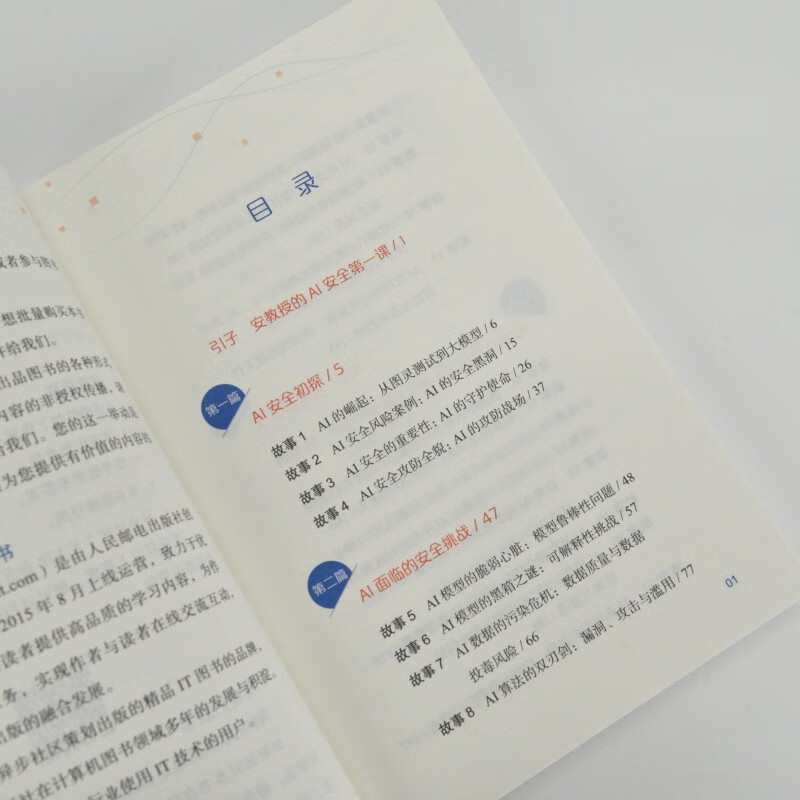 或者参与图书
想批量购买本书
并给我们。
出品图书的各种形式
内容的非授权传播,
给我们。您的这一举动是
为您提供有价值的内容的
书
t.com）是由人民邮电出版社创
2015年8月上线运营，致力于优
读者提供高品质的学习内容，为作
务，实现作者与读者在线交流互动，
出版的融合发展。
异步社区策划出版的精品IT图书的品牌，
社在计算机图书领域多年的发展与积淀。
行业使用IT技术的用户。
目 录
引子 安教授的AI安全第一课 / 1
第一篇 AI安全初探 / 5
故事1 AI的崛起：从图灵测试到大模型 / 6
故事2 AI安全风险案例：AI的安全黑洞 / 15
故事3 AI安全的重要性：AI的守护使命 / 26
故事4 AI安全攻防全貌：AI的攻防战场 / 37
第二篇 AI面临的安全挑战 / 47
故事5 AI模型的脆弱心脏：模型鲁棒性问题 / 48
故事6 AI模型的黑箱之谜：可解释性挑战 / 57
故事7 AI数据的污染危机：数据质量与数据
投毒风险 / 66
故事8 AI算法的双刃剑：漏洞、攻击与滥用 / 77
01